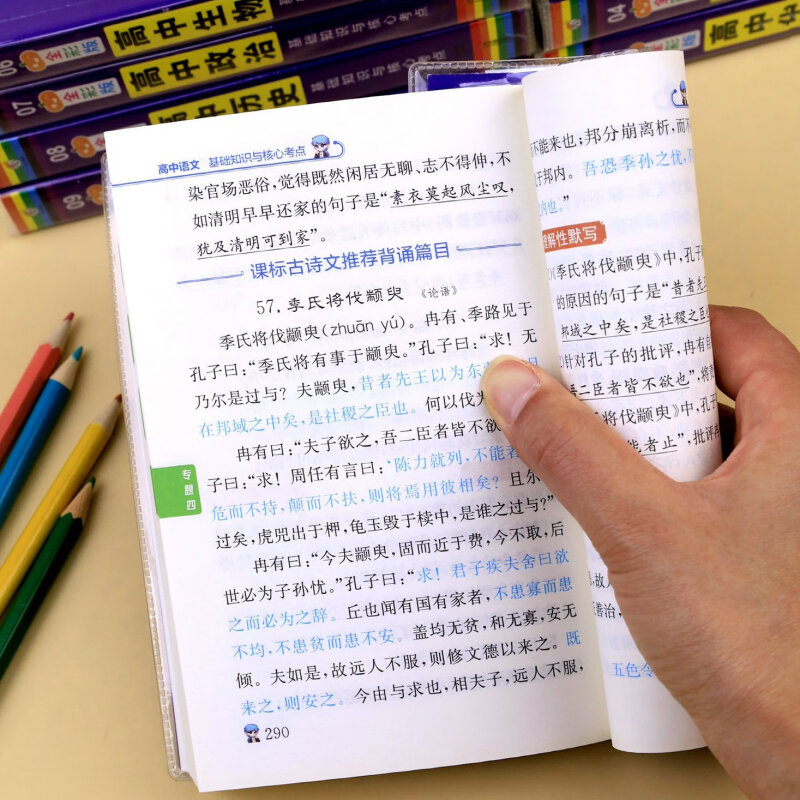 06 全彩版 高中生物 基础知识与核心考点
07 全彩版 高中政治 基础知识与核心考点
08 全彩版 高中历史 基础知识与核心考点
09
04 高中
高中语文 基础知识与核心考点
染官场恶俗，觉得既然闲居无聊、志不得伸，不
如清明早早还家的句子是“素衣莫起风尘叹，
犹及清明可到家”。
课标古诗文推荐背诵篇目
57.季氏将伐颛臾 《论语》
季氏将伐颛臾(zhuān yú)。冉有、季路见于
孔子曰：“季氏将有事于颛臾。”孔子曰：“求！无
乃尔是过与？夫颛臾，昔者先王以为东
在邦域之中矣，是社稷之臣也。何以伐为
冉有曰：“夫子欲之，吾二臣者皆不欲
子曰：“求！周任有言曰：‘陈力就列，不能者
危而不持，颠而不扶，则将焉用彼相矣？且尔
过矣，虎兕出于柙，龟玉毁于椟中，是谁之过与？”
冉有曰：“今夫颛臾，固而近于费，今不取，后
世必为子孙忧。”孔子曰：“求！君子疾夫舍曰欲
之而必为之辞。丘也闻有国有家者，不患寡而患
不均，不患贫而患不安。盖均无贫，和无寡，安无
倾。夫如是，故远人不服，则修文德以来之。既
来之，则安之。今由与求也，相夫子，远人不服，
专题四
290
不能来也；邦分崩离析，而不
于邦内。吾恐季孙之忧，不
内也。”
理解性默写
《季氏将伐颛臾》中，孔子
的原因的句子是“昔者先
邦域之中矣，是社稷之臣
针对孔子的批评，冉有自
吾二臣者皆不欲也”，将责
氏将伐颛臾》中，孔子
能者止”，批评冉
故人
善治，
五色令